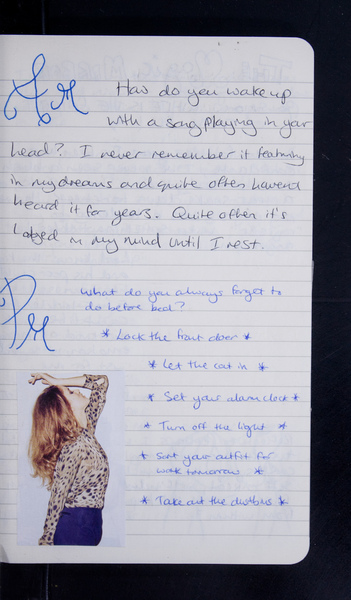 Am
How do you wake up
with a song playing in your
head? I never remember it featuring
in my dreams and quite often havent
heard it for years. Quite often it's
lodged in my mind until I rest.
Pm
What do you always forget to
do before bed?
* Lock the front door *
* Let the cat in *
* Set your alarm clock *
* Turn off the light *
* Sort your outfit for
work tomorrow *
* Take out the dustbins *